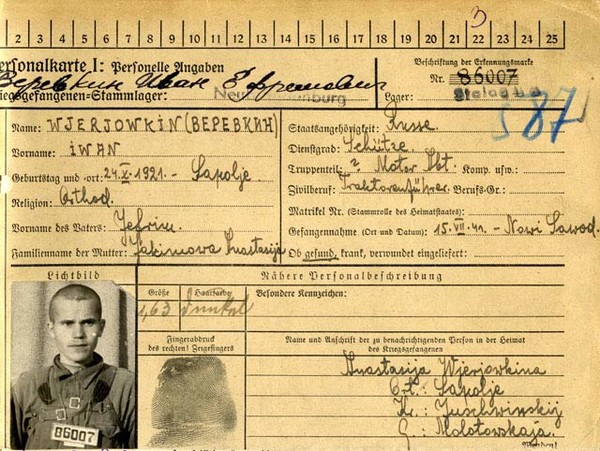 3
2 3 4 5 6 7 8 9 10 11 12 13 14 15 16 17 18 19 20 21 22 23 24 25
Personalkarte I: Personelle Angaben
Beschriftung der Erkennungsmarke
Веревкин Иван Ефремович
Nr. 86007
Kriegsgefangenen-Stammlager:
Lager: Stalag
87
Name: WJERJOWKIN (ВЕРЕВКИН)
Vorname: IWAN
Geburtstag und -ort: 24.X.1921. - Sapolje.
Religion: Orthod.
Vorname des Vaters: Jefrim.
Familienname der Mutter: Jakimowa Anastasija
Staatsangehörigkeit: Russe.
Dienstgrad: Schütze.
Truppenteil: ? Motor Abt. Komp. usw.:
Zivilberuf: Traktorenführer. Berufs-Gr.:
Matrikel Nr. (Stammrolle des Heimatstaates):
Gefangennahme (Ort und Datum): 15.VII.41. - Nowi Sawod.
Ob gesund, krank, verwundet eingeliefert:
Lichtbild
86007
Nähere Personalbeschreibung
Größe
1,63
Haarfarbe
dunkel
Besondere Kennzeichen:
Fingerabdruck
des rechten! Zeigefingers
Name und Anschrift der zu benachrichtigenden Person in der Heimat
des Kriegsgefangenen
Anastasija Wjerjowkina
Ort: Sapolje
Kr.: Juschwinskij
G.: Molotowskaja.